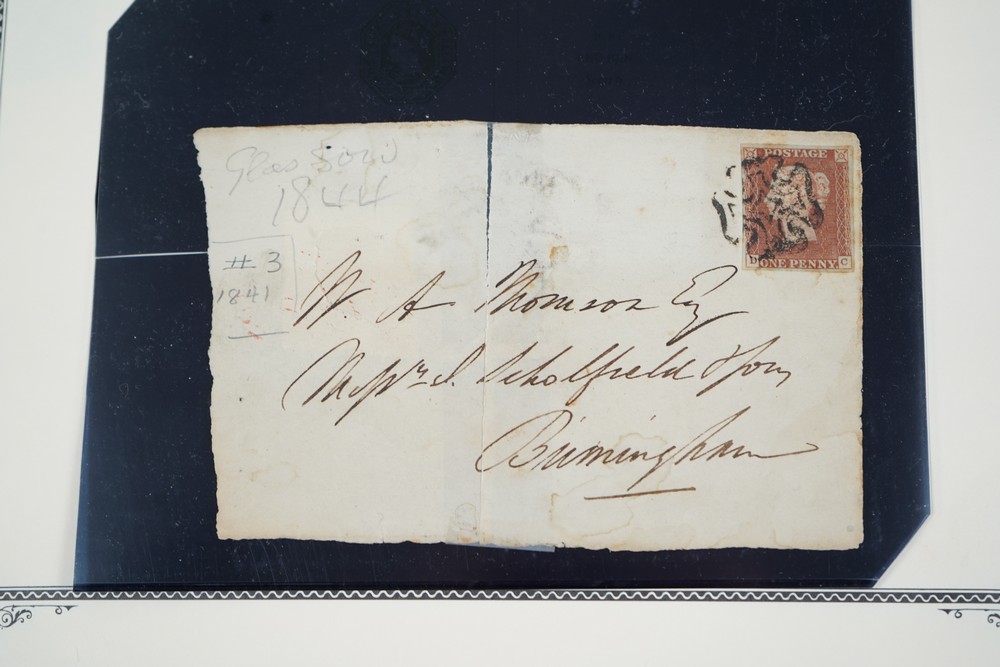 Glasgow
1844
# 3
1841
POSTAGE
D ONE PENNY C
W. A. Thomson Esq
Messrs. J. Scholfield & Sons
Birmingham